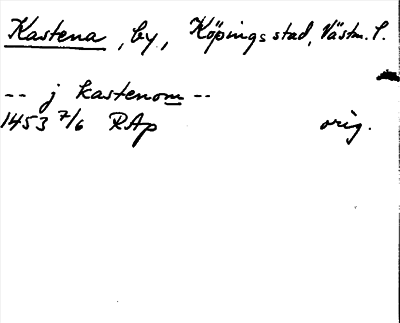 Kastena, by, Köpings stad, Västm. l.
-- j kastenom --
1453 7/6 RAp orig.